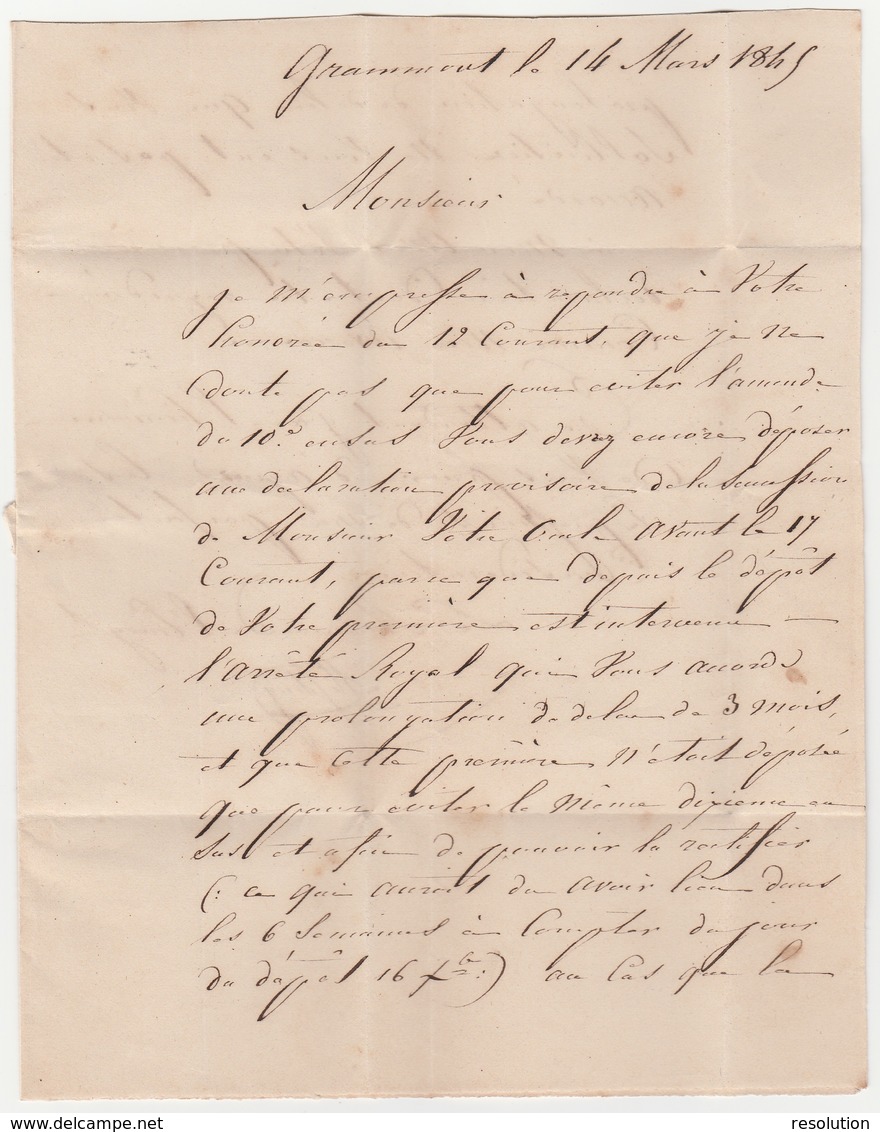 Grammont le 14 Mars 1845
Monsieur
Je m'empresse à repondre à Votre
honorée du 12 Courant, que je ne
doute pas que pour eviter l'amende
du 10e en sus Vous devez encore déposer
une declaration provisoire de la succession
de Monsieur Votre Oncle avant le 17
Courant, parce que depuis le dépôt
de Votre première est intervenue
l'arrêté Royal qui Vous accorde
une prolongation de delai de 3 mois,
et que cette première n'était déposée
que pour eviter le même dixieme en
sus et afin de pouvoir la rectifier
(: ce qui auroit du avoir lieu dans
les 6 Semaines à Compter du jour
du dépôt 16 Xbre :) au Cas que la
delcampe.net
resolution